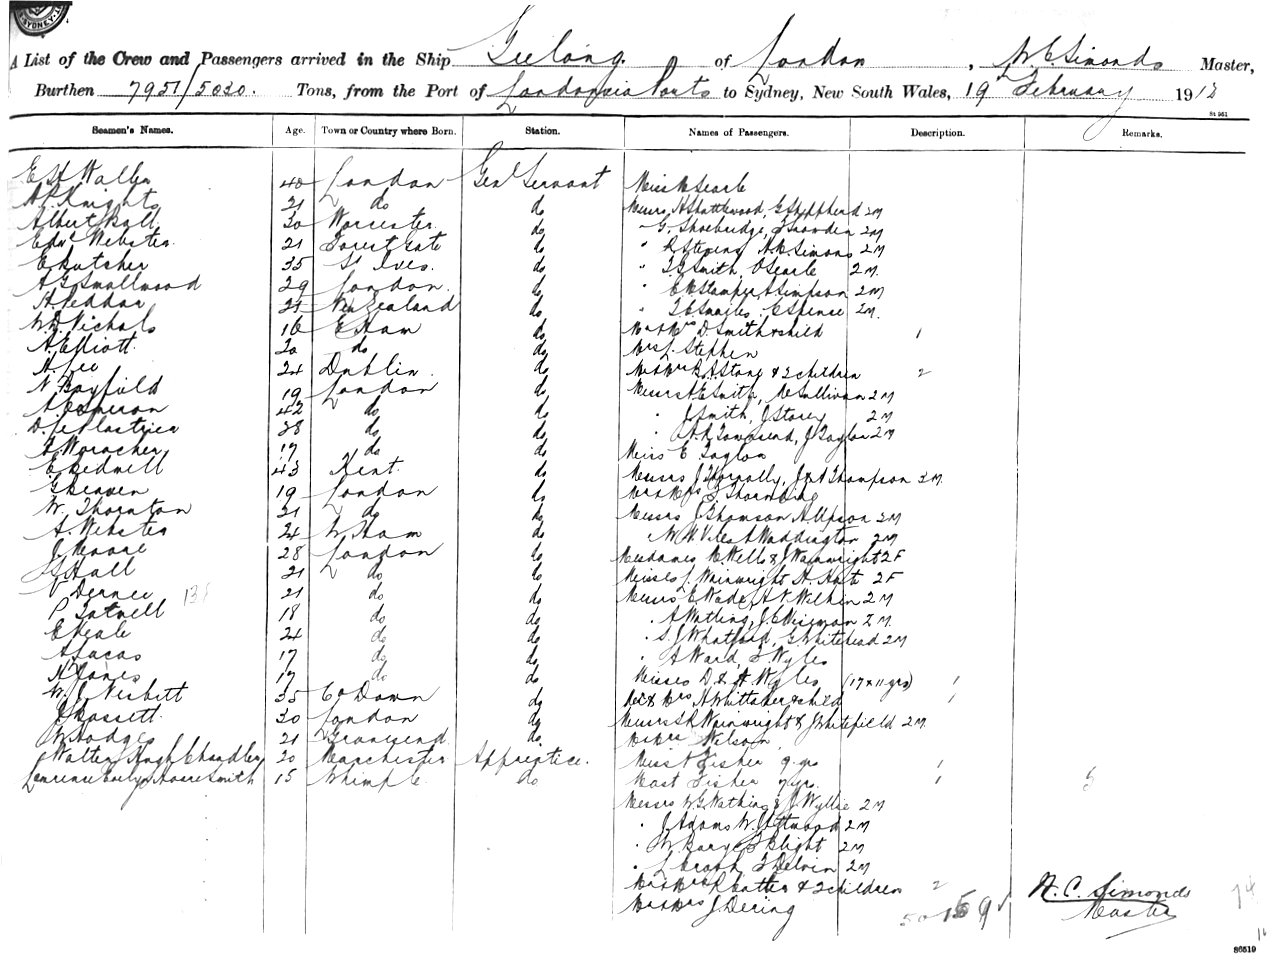 SYDNEY
A List of the Crew and Passengers arrived in the Ship Geelong of London, W C Simonds Master,
Burthen 7951/5030. Tons, from the Port of London via Ports to Sydney, New South Wales, 19 February 1912
St 951
Seamen's Names. Age. Town or Country where Born. Station. Names of Passengers. Description. Remarks.
E H Waller 40 London Genl Servant Miss M Searle
A P Knights 21 do do Messrs H Shattlewood, G Shepherd 2M
Albert Ball 30 Worcester do " G. Shoebridge, Snowden 2M
Edwd Webster 21 Forest Gate do " R Stevens, A E Simons 2M
E Butcher 35 St Ives. do " T G Smith, O Searle 2M.
A G Smallwood 29 London. do " E W Stamper, A Simpson 2M
H Peddar 21 New Zealand do " T C Smailes, C Spence 2M.
W D Nichols 16 E Ham do Mr & Mrs D. Smith & child 1
A Elliott 20 do do Mrs L. Stephen
H Lee 24 Dublin. do Mr & Mrs A Stone & 2 children 2
N Bayfield 19 London do Messrs A E Smith, M Sullivan 2M
A Cameron 42 do do " J Smith, J Storey 2M
D. 28 do do " A R Townsend, J Taylor 2M
17 do do Miss E Taylor
E Bedwell 43 Kent. do Messrs J Thornally, J & A Thompson 3M.
G Beaven 19 London do Mr & Mrs
W. Thornton 21 do do Messrs J Thomson, A Upson 2M
A. Webster 24 W Ham do " W H Viles, A Waddington 2M
J. Moore 28 London do Mesdames M Wells & J Wainwright 2F
Hall 21 do do Misses L Wainwright, H. 2F
V Dernee 21 do do Messrs E Wade, A V Wilkin 2M
P Tatnell 18 do do " A Watling, J. C Wiseman 2M.
E Neale 24 do do " S. J Whatford, G Whitehead 2M
A Lucas 17 do do " A Ward, Wyles
H Jones 17 do do Misses D & A Wyles (17 & 11 yrs) 1
W. J Nesbitt 35 Co Down do Mr & Mrs A Whittaker & child 1
Bassett 30 London do Messrs S R Wainwright & J Whitefield 2M
W Hodges 21 Gravesend do Mr & Mrs Wilson
Walter Hugh Chandler 20 Manchester Apprentice. Miss Fisher 9 yrs 1
Lawrence Hoare Smith 15 Whimple do Mast Fisher 7 yrs. 1
Messrs W G Watkins & J Wyllie 2M
" J Adams, W. J Attwood 2M
" W Bary, Blight 2M
" L Delvin 2M
Mr & Mrs & 2 children 2
Mr & Mrs J Dering
W. C. Simonds
Master
86519